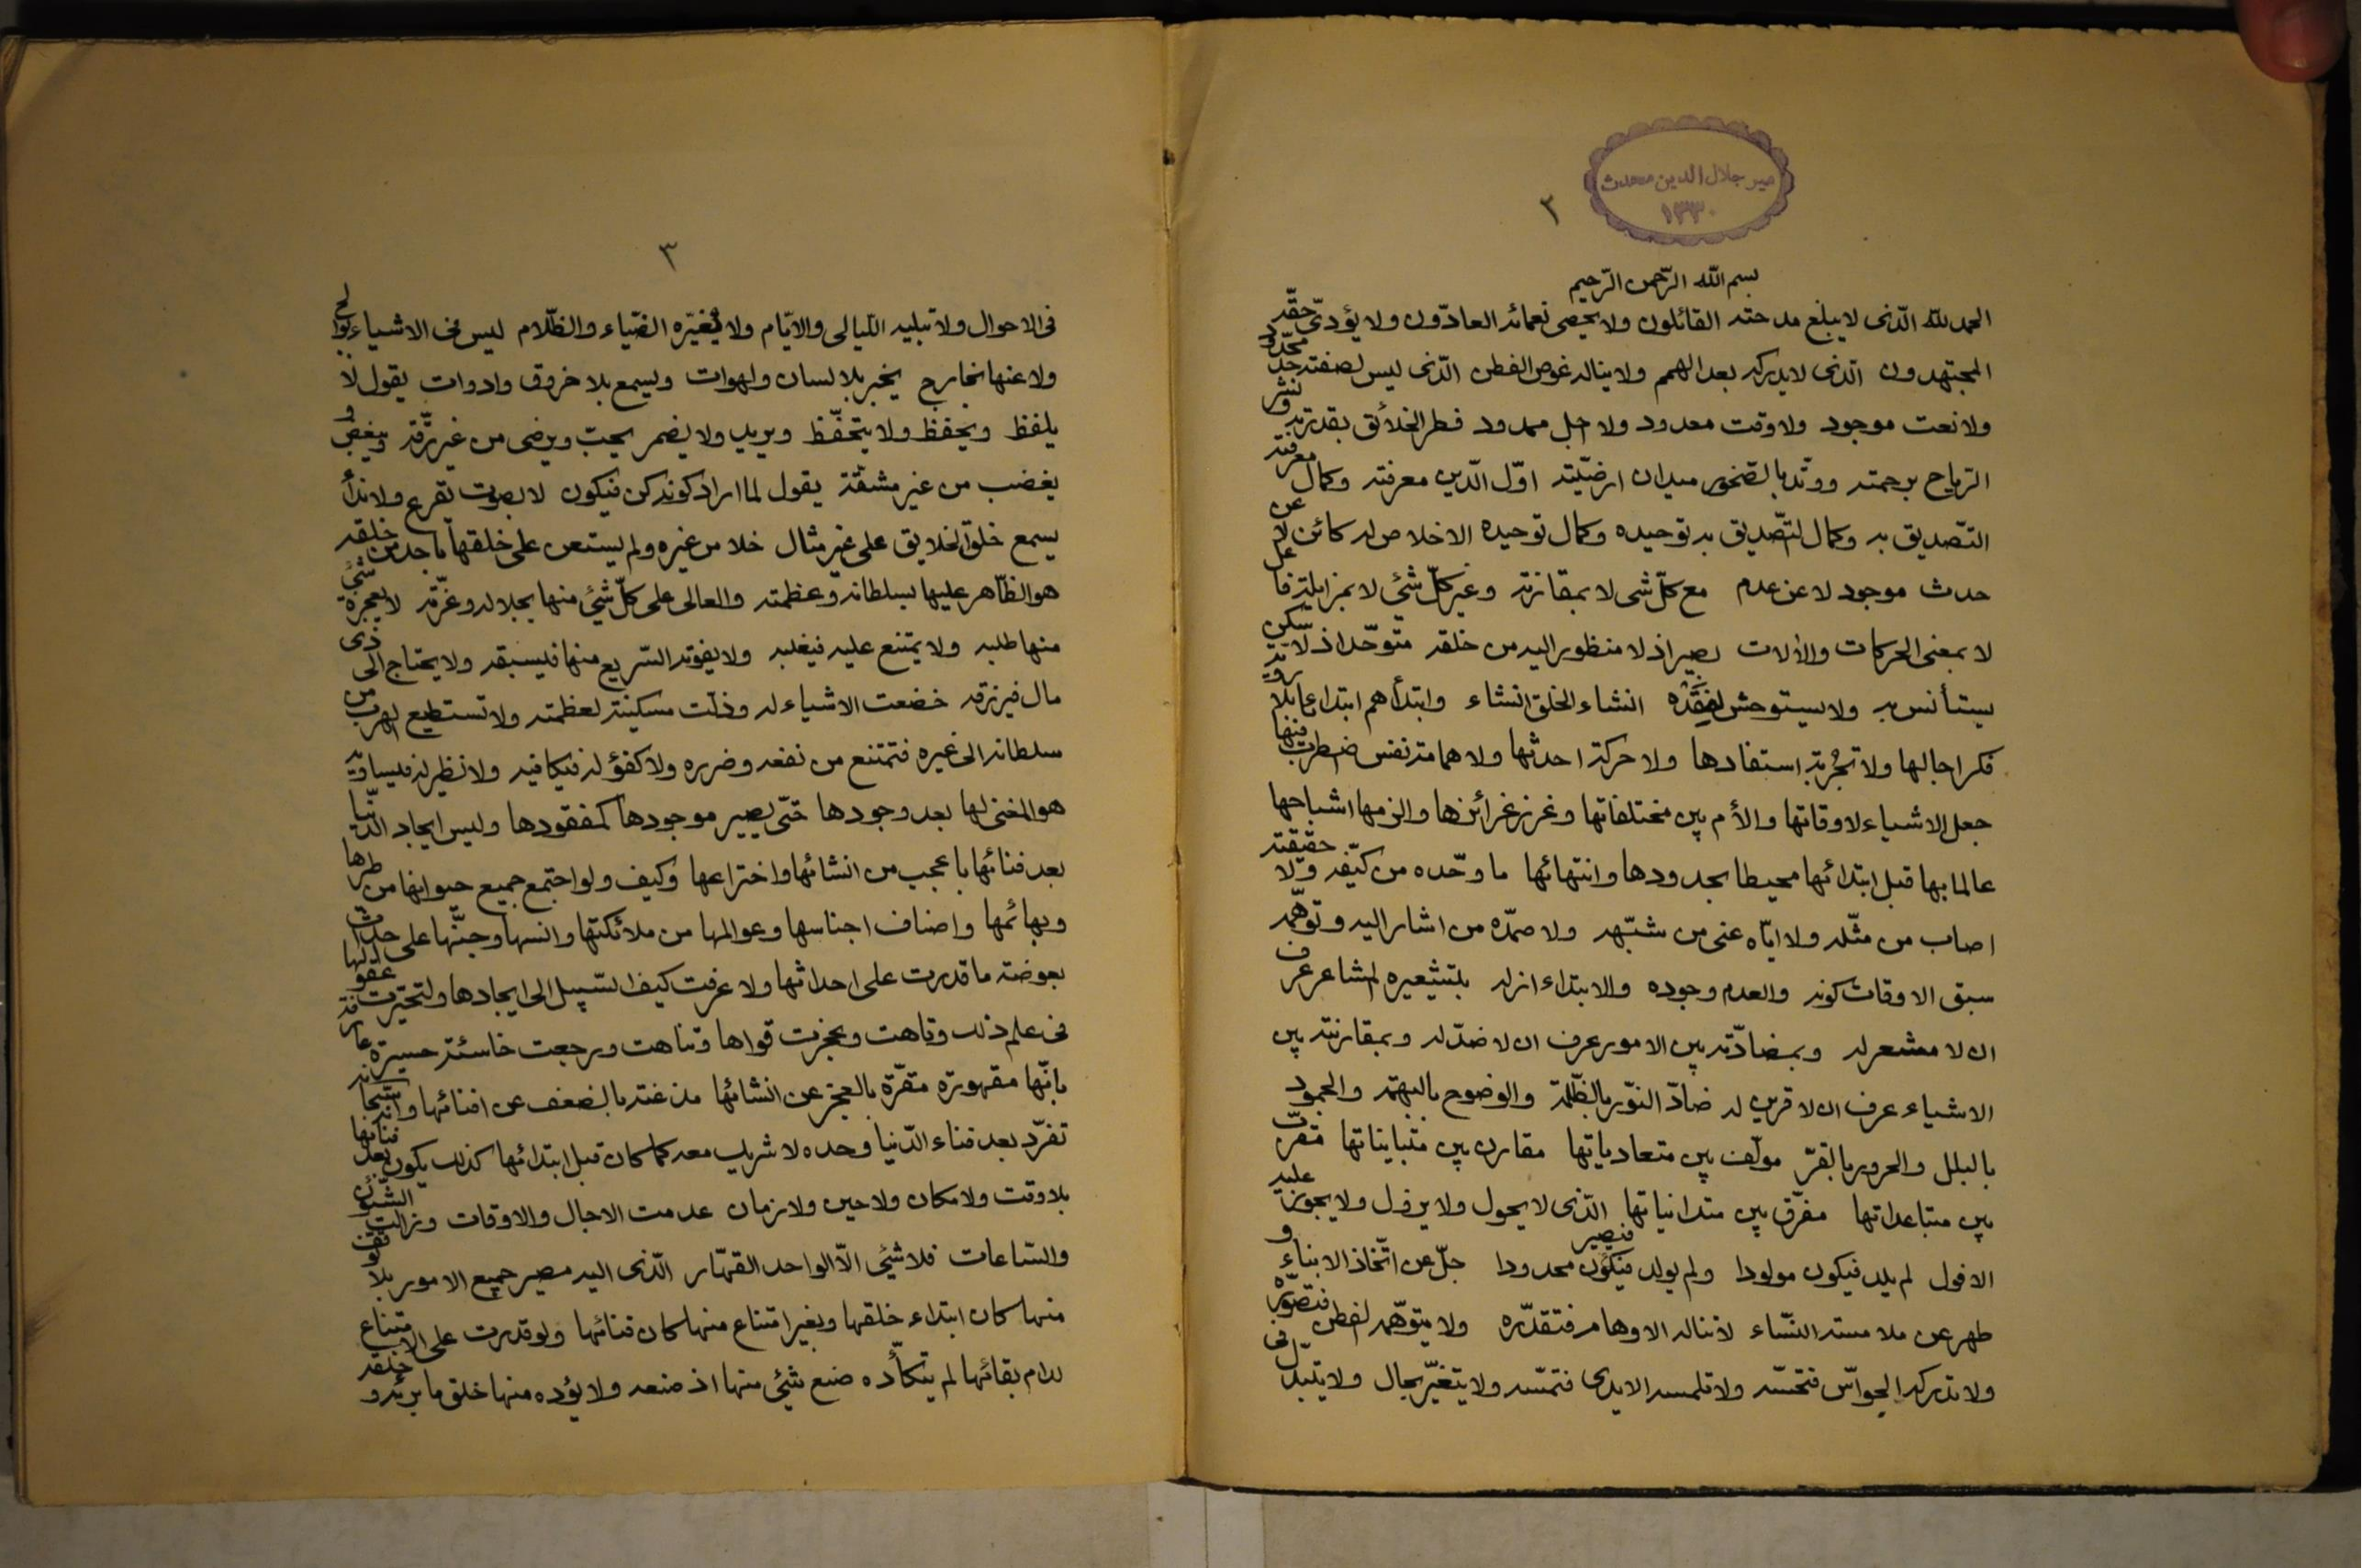 مير جلال الدين محدث
۱۳۳۰
۲
بسم الله الرّحمن الرّحيم
الحمد لله الّذى لا يبلغ مدحته القائلون ولا يحصى نعمائه العادّون ولا يؤدىّ حقّه
المجتهدون الّذى لا يدركه بعد الهمم ولا يناله غوص الفطن الّذى ليس لصفته حدّ محدود
ولا نعت موجود ولا وقت معدود ولا اجل ممدود فطر الخلائق بقدرته ونشر
الرّياح برحمته ووتّد بالصّخور ميدان ارضيّته اوّل الدّين معرفته وكمال معرفته
التّصديق به وكمال التّصديق به توحيده وكمال توحيده الاخلاص له كائن لا عن
حدث موجود لا عن عدم مع كلّ شى لا بمقارنة وغير كلّ شئي لا بمزايلة فاعل
لا بمعنى الحركات والألات بصير اذ لا منظور اليه من خلقه متوحّد اذ لا سكن
يستأنس به ولا يستوحش لفقده انشاء الخلق انشاء وابتدأهم ابتداءا بلا روية
فكر اجالها ولا تجربة استفادها ولا حركة احدثها ولا همامة نفس اضطرب فيها
جعل الاشياء لاوقاتها والأم بين مختلفاتها وغرز غرائزها والزمها اشباحها
عالما بها قبل ابتدائها محيطا بحدودها وانتهائها ما وحّده من كيّفه ولا حقيقته
اصاب من مثّله ولا ايّاه عنى من شبّهه ولا صمّده من اشار اليه وتوهّمه
سبق الاوقات كونه والعدم وجوده والابتداء ازله بتشعيره المشاعر عرف
ان لا مشعر له وبمضادّته بين الامور عرف ان لا ضدّ له وبمقارنته بين
الاشياء عرف ان لا قرين له ضادّ النّور بالظّلمة والوضوح بالبهمة والجمود
بالبلل والحرور بالقرّ مولّف بين متعادياتها مقارن بين متبايناتها مقرّب
بين متباعداتها مفرّق بين متدانياتها الّذى لا يحول ولا يزول ولا يجوز عليه
الافول لم يلد فيكون مولودا ولم يولد فيصير محدودا جلّ عن اتّخاذ الابناء و
طهر عن ملامسة النّساء لا تناله الاوهام فتقدّره ولا يتوهّمه الفطن فتصوّره
ولا تدركه الحواسّ فتحسّه ولا تلمسه الايدى فتمسّه ولا يتغيّر بحال ولا يتبدّل فى
۳
فى الاحوال ولا تبليه اللّيالى والايّام ولا يغيّره الضّياء والظّلام ليس فى الاشياء بوالج
ولا عنها بخارج يخبر بلا لسان ولهوات ويسمع بلا خروق وادوات يقول لا
يلفظ ويحفظ ولا يتحفّظ ويريد ولا يضمر يحبّ ويرضى من غير رقّة ويبغض و
يغضب من غير مشقّة يقول لما اراد كونه كن فيكون لا بصوت تقرع ولا نداء
يسمع خلق الخلايق على غير مثال خلا من غيره ولم يستعن على خلقها باحد من خلقه
هو الظّاهر عليها بسلطانه وعظمته والعالى على كلّ شئي منها بجلاله وعزّته لا يعجزه شئي
منها طلبه ولا يمتنع عليه فيغلبه ولا يفوته السّريع منها فيسبقه ولا يحتاج الى ذى
مال فيرزقه خضعت الاشياء له وذلّت مسكينة لعظمته ولا تستطيع الهرب من
سلطانه الى غيره فتمتنع من نفعه وضرره ولا كفؤ له فيكافيه ولا نظير له فيساويه
هو المفنى لها بعد وجودها حتّى يصير موجودها كمفقودها وليس ايجاد الدّنيا
بعد فنائها باعجب من انشائها واختراعها وكيف ولو اجتمع جميع حيوانها من طيرها
وبهائمها واصناف اجناسها وعوالمها من ملائكتها وانسها وجنّها على احداث
بعوضة ما قدرت على احداثها ولا عرفت كيف السّبيل الى ايجادها ولتحيّرت عقولها
فى علم ذلك وتاهت وعجزت قواها وتناهت ورجعت خاسئة حسيرة عارفة
بانّها مقهورة مقرّة بالعجز عن انشائها مذعنة بالضعف عن افنائها وانّه سبحانه
تفرّد بعد فناء الدّنيا وحده لا شريك معه كما كان قبل ابتدائها كذلك يكون بعد فنائها
بلا وقت ولا مكان ولا حين ولا زمان عدمت الاجال والاوقات وزالت السّنون
والسّاعات فلا شئي الّا الواحد القهّار الّذى اليه مصير جميع الامور بلا
منها كان ابتداء خلقها وبغير امتناع منها كان فنائها ولو قدرت على الامتناع
لدام بقائها لم يتكأّده صنع شئي منها اذ صنعه ولا يؤده منها خلق ما برئه و خلقه